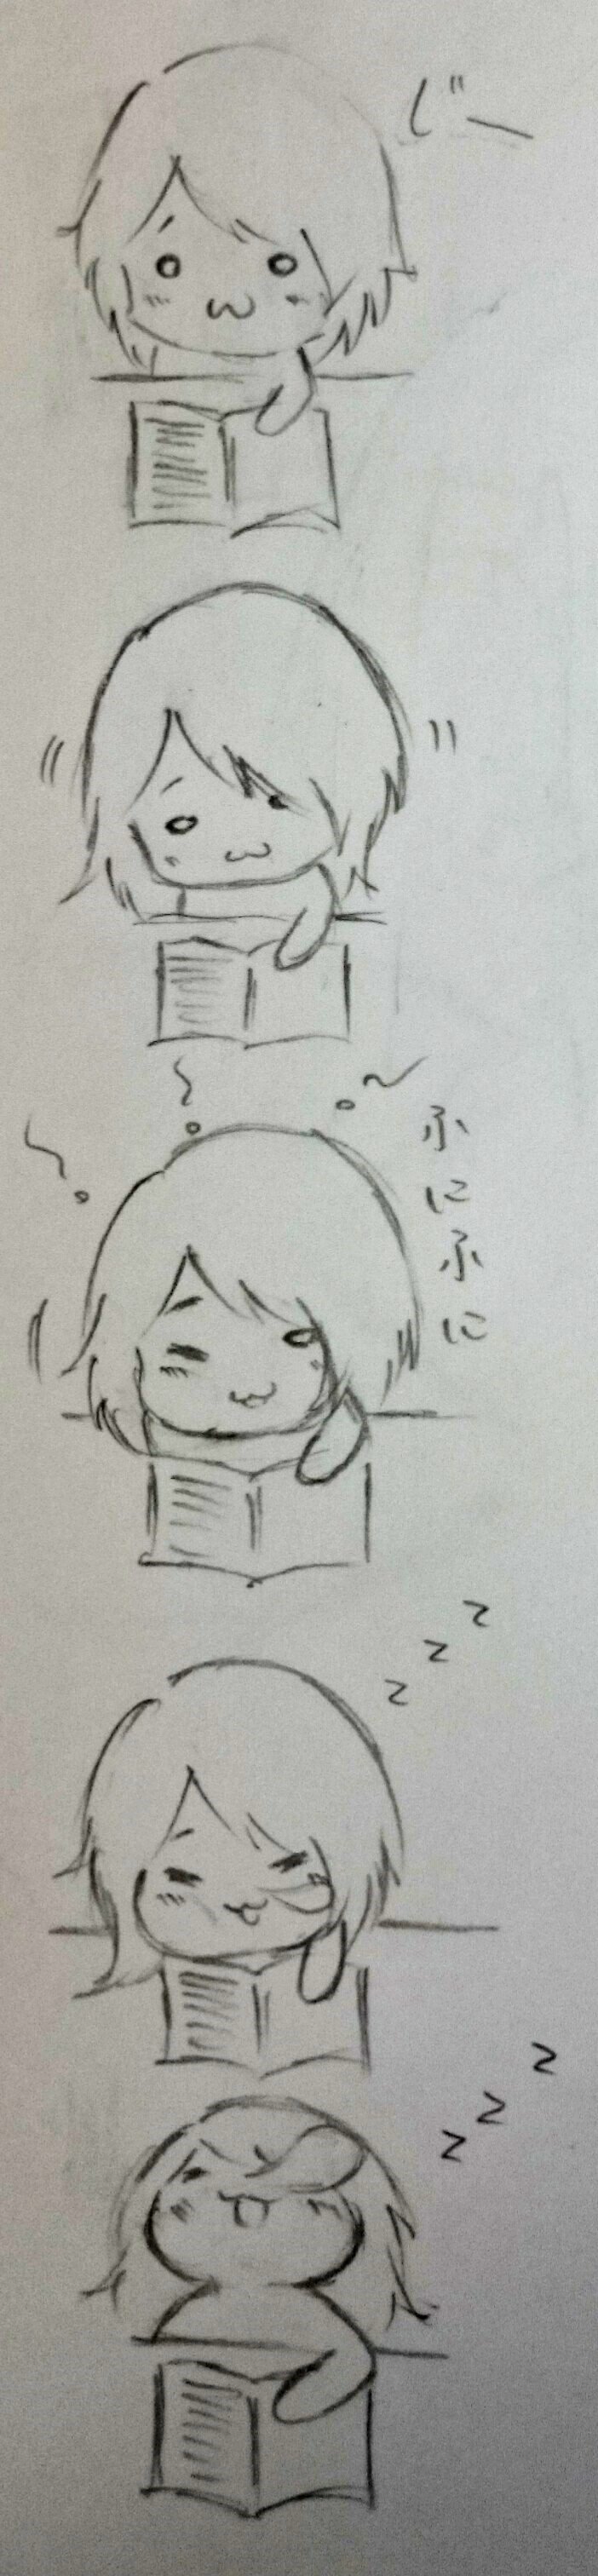 じー
ふにふに
zzz
zzz